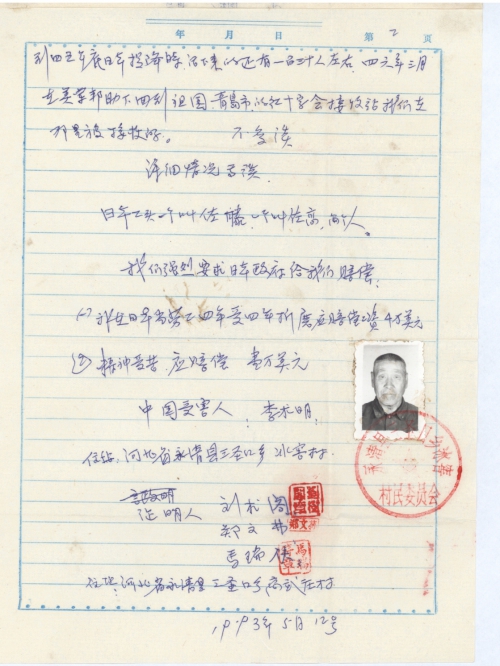 年 月 日 第 2 页
到四五年底日本投降时 留下来的还有一百三十人左右, 四六年三月
在美军帮助下回到祖国, 青岛市的红十字会接收站我们在
那里被接收的。 不多谈
详细情况面谈
日本工头一个叫佐藤, 一个叫佐高, 两个人。
我们强烈要求日本政府给我们赔偿:
(一) 我在日本当劳工四年受四年折磨应赔偿工资4万美元
(2) 精神受苦, 应赔偿 壹万美元
中国受害人: 李术明
住址, 河北省永清县三圣口乡 村
证明人 刘术阁
郑文
马瑞
住址 河北省永清县三圣口乡 村
1993年5月12号
村民委员会